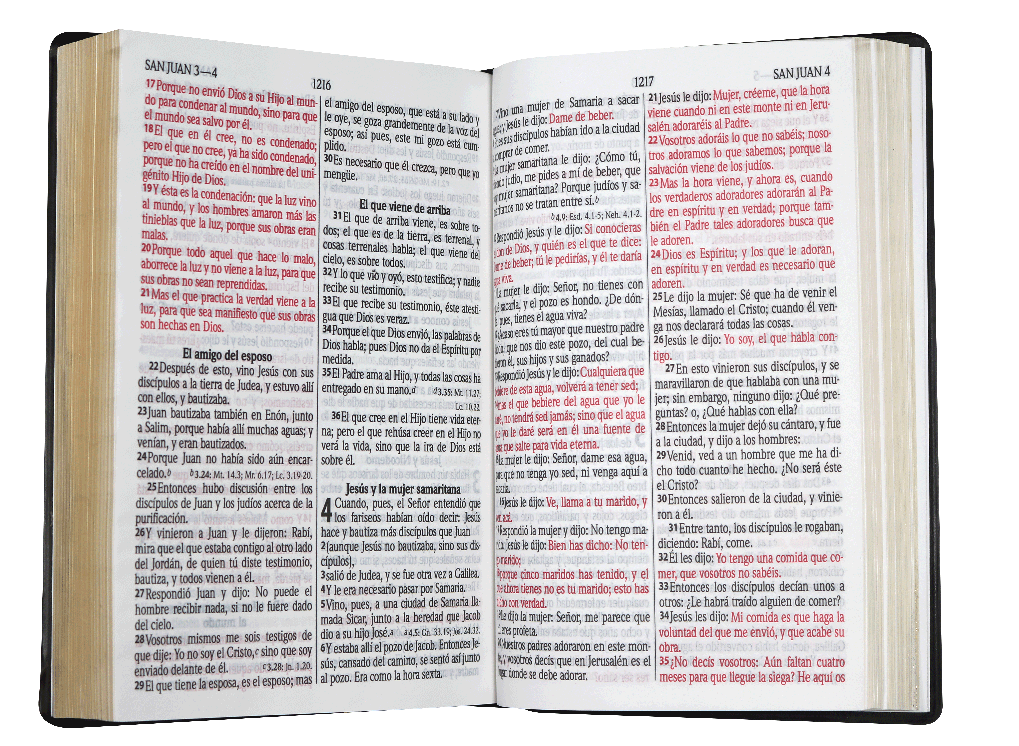 SAN JUAN 3—4
1216
17Porque no envió Dios a su Hijo al mun-
do para condenar al mundo, sino para que
el mundo sea salvo por él.
18El que en él cree, no es condenado;
pero el que no cree, ya ha sido condenado,
porque no ha creído en el nombre del uni-
génito Hijo de Dios.
19Y ésta es la condenación: que la luz vino
al mundo, y los hombres amaron más las
tinieblas que la luz, porque sus obras eran
malas.
20Porque todo aquel que hace lo malo,
aborrece la luz y no viene a la luz, para que
sus obras no sean reprendidas.
21Mas el que practica la verdad viene a la
luz, para que sea manifiesto que sus obras
son hechas en Dios.
El amigo del esposo
22Después de esto, vino Jesús con sus
discípulos a la tierra de Judea, y estuvo allí
con ellos, y bautizaba.
23Juan bautizaba también en Enón, junto
a Salim, porque había allí muchas aguas; y
venían, y eran bautizados.
24Porque Juan no había sido aún encar-
celado.b b3.24: Mt. 14.3; Mr. 6.17; Lc. 3.19-20.
25Entonces hubo discusión entre los
discípulos de Juan y los judíos acerca de la
purificación.
26Y vinieron a Juan y le dijeron: Rabí,
mira que el que estaba contigo al otro lado
del Jordán, de quien tú diste testimonio,
bautiza, y todos vienen a él.
27Respondió Juan y dijo: No puede el
hombre recibir nada, si no le fuere dado
del cielo.
28Vosotros mismos me sois testigos de
que dije: Yo no soy el Cristo,c sino que soy
enviado delante de él. c3.28: Jn. 1.20.
29El que tiene la esposa, es el esposo; mas
el amigo del esposo, que está a su lado y
le oye, se goza grandemente de la voz del
esposo; así pues, este mi gozo está cum-
plido.
30Es necesario que él crezca, pero que yo
mengüe.
El que viene de arriba
31El que de arriba viene, es sobre to-
dos; el que es de la tierra, es terrenal, y
cosas terrenales habla; el que viene del
cielo, es sobre todos.
32Y lo que vio y oyó, esto testifica; y nadie
recibe su testimonio.
33El que recibe su testimonio, éste atesti-
gua que Dios es veraz.
34Porque el que Dios envió, las palabras de
Dios habla; pues Dios no da el Espíritu por
medida.
35El Padre ama al Hijo, y todas las cosas ha
entregado en su mano.d d3.35: Mt. 11.27;
Lc. 10.22.
36El que cree en el Hijo tiene vida eter-
na; pero el que rehúsa creer en el Hijo no
verá la vida, sino que la ira de Dios está
sobre él.
Jesús y la mujer samaritana
4 Cuando, pues, el Señor entendió que
los fariseos habían oído decir: Jesús
hace y bautiza más discípulos que Juan
2(aunque Jesús no bautizaba, sino sus dis-
cípulos),
3salió de Judea, y se fue otra vez a Galilea.
4Y le era necesario pasar por Samaria.
5Vino, pues, a una ciudad de Samaria lla-
mada Sicar, junto a la heredad que Jacob
dio a su hijo José.a a4.5: Gn. 33.19; Jos. 24.32.
6Y estaba allí el pozo de Jacob. Entonces Je-
sús, cansado del camino, se sentó así junto
al pozo. Era como la hora sexta.
1217
SAN JUAN 4
Vino una mujer de Samaria a sacar
y Jesús le dijo: Dame de beber.
sus discípulos habían ido a la ciudad
comprar de comer.
mujer samaritana le dijo: ¿Cómo tú,
judío, me pides a mí de beber, que
mujer samaritana? Porque judíos y sa-
no se tratan entre sí.b
b4.9: Esd. 4.1-5; Neh. 4.1-2.
Respondió Jesús y le dijo: Si conocieras
de Dios, y quién es el que te dice:
de beber; tú le pedirías, y él te daría
viva.
La mujer le dijo: Señor, no tienes con
sacarla, y el pozo es hondo. ¿De dón-
pues, tienes el agua viva?
eres tú mayor que nuestro padre
que nos dio este pozo, del cual be-
él, sus hijos y sus ganados?
Respondió Jesús y le dijo: Cualquiera que
bebiere de esta agua, volverá a tener sed;
el que bebiere del agua que yo le
no tendrá sed jamás; sino que el agua
yo le daré será en él una fuente de
que salte para vida eterna.
La mujer le dijo: Señor, dame esa agua,
que no tenga yo sed, ni venga aquí a
Jesús le dijo: Ve, llama a tu marido, y
Respondió la mujer y dijo: No tengo ma-
Jesús le dijo: Bien has dicho: No ten-
marido;
porque cinco maridos has tenido, y el
ahora tienes no es tu marido; esto has
con verdad.
Le dijo la mujer: Señor, me parece que
profeta.
Nuestros padres adoraron en este mon-
y vosotros decís que en Jerusalén es el
donde se debe adorar.
21Jesús le dijo: Mujer, créeme, que la hora
viene cuando ni en este monte ni en Jeru-
salén adoraréis al Padre.
22Vosotros adoráis lo que no sabéis; noso-
tros adoramos lo que sabemos; porque la
salvación viene de los judíos.
23Mas la hora viene, y ahora es, cuando
los verdaderos adoradores adorarán al Pa-
dre en espíritu y en verdad; porque tam-
bién el Padre tales adoradores busca que
le adoren.
24Dios es Espíritu; y los que le adoran,
en espíritu y en verdad es necesario que
adoren.
25Le dijo la mujer: Sé que ha de venir el
Mesías, llamado el Cristo; cuando él ven-
ga nos declarará todas las cosas.
26Jesús le dijo: Yo soy, el que habla con-
tigo.
27En esto vinieron sus discípulos, y se
maravillaron de que hablaba con una mu-
jer; sin embargo, ninguno dijo: ¿Qué pre-
guntas? o, ¿Qué hablas con ella?
28Entonces la mujer dejó su cántaro, y fue
a la ciudad, y dijo a los hombres:
29Venid, ved a un hombre que me ha di-
cho todo cuanto he hecho. ¿No será éste
el Cristo?
30Entonces salieron de la ciudad, y vinie-
ron a él.
31Entre tanto, los discípulos le rogaban,
diciendo: Rabí, come.
32Él les dijo: Yo tengo una comida que co-
mer, que vosotros no sabéis.
33Entonces los discípulos decían unos a
otros: ¿Le habrá traído alguien de comer?
34Jesús les dijo: Mi comida es que haga la
voluntad del que me envió, y que acabe su
obra.
35¿No decís vosotros: Aún faltan cuatro
meses para que llegue la siega? He aquí os